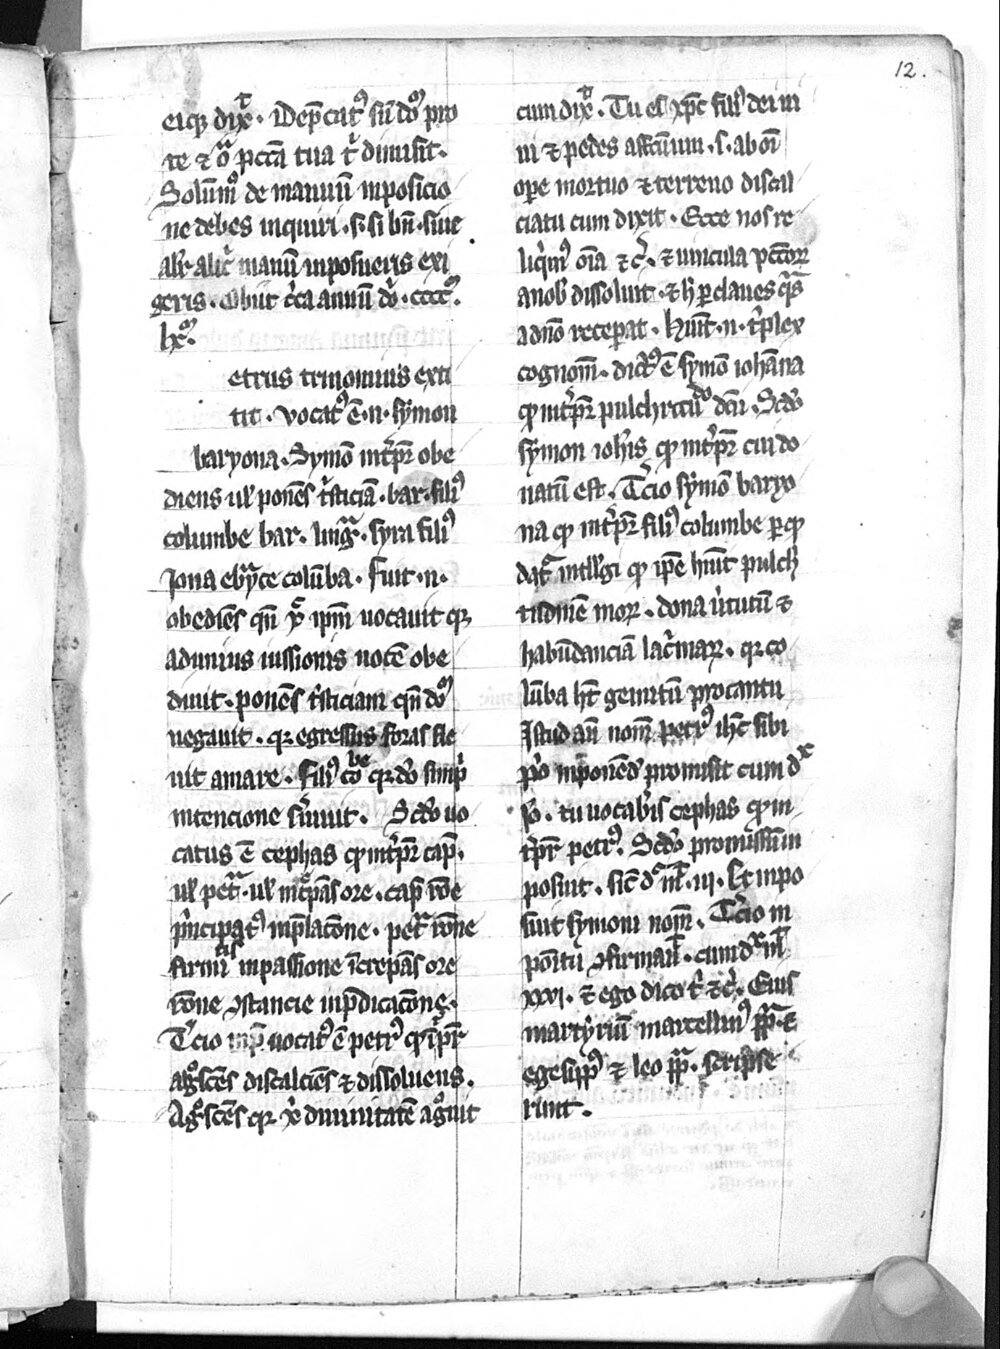 12.
eiqꝫ dixͭ. Dep̄catꝰ su̅ dōꝫ pro
te ⁊ oi̅a pccā tua tͥ dimisit.
Solūmͦ de manuū inposicio
ne debes inquiri. s. si bn̄ . siue
alr̄ alicͥ manū inposueris exi
geris. Obiit cͥca annū dn̄i . cccc.
lxͦ.
etrus trinomius exti
tit. vocatꝰ ē .n. symon
baryona. Symō int̓p̄r obe
diens ul̓ ponēs tͥsticiā. bar. filiꝰ
columbe bar. lingͣ. syra filiꝰ
Iona ebrayce colūba. Fuit .n.
obediēs qn̄ xp̄c ip̄m uocauit qꝫ
ad unius iussionis uocē obe
diuit. ponēs tͥsticiam qn̄ dōꝫ
negauit. qꝫ egressus foras fle
uit amare. filiꝰ colūbe qꝫ dō simp̄
intencione s̓uiuit. Scd̄o uo
catus ē cephas qꝫ int̓p̄r cap̄.
ul̓ petͣ. ul̓ increpās ore. cap̄ rōe
pͥncipatꝰ in p̄lacōne. petͣ rōne
firmitatis in passione īcrepās ore
rōne ꝯstancie in p̄dicacōne.
T̓cio uocatꝰ ē petrꝰ qꝫ īt̓p̄r
agͦscēs discalciēs ⁊ dissoluens.
Agͦscēs qꝫ xp̄i diuinitatē agͦuit
cum dixͭ. Tu es xp̄c filiꝰ dei ui
ui ⁊ pedes affectuum . s. ab oi̅
ope mortuo ⁊ terreno discal
ciatu cum dixit. Ecce nos re
liqͥmꝰ oi̅a ⁊c̓. ⁊ uincula pccōꝝ
a nob̓ dissoluit. ⁊ h̓ ꝑ claues qͣs
a dn̄o recepat. Huit̄ .n. tͥplex
cognom̄. dictꝰ ē symō iohāna
qꝫ int̓p̄r pulchritudo dn̄i. Scd̄o
symon ioh̓is qꝫ int̓p̄r cui do
natū est. T̓cio symō baryo
na qꝫ int̓p̄r filiꝰ columbe ꝑ qꝫ
dat̓ intell̓gi qꝫ ip̄e huit̄ pulch̓
tudinē moꝝ. dona uͥtutū ⁊
habūdanciā lac̓maꝝ. qꝫ co
lūba ht̄ gemitū pro cantu
Istud aū nom̄ petrꝰ ih̄c sibi
pͥo inponēd̓ promisit cum dͬ
Io. tu vocab̓is cephas qꝫ in
t̓p̄r petrꝰ. Scd̄o promissū in
posuit. sic̄ dͬ mͬ. iii. Et inpo
suit symoni nom̄. T̓cio in
poītū ꝯfirmauit. cum dͬ mͭ.
xvi. ⁊ ego dico tͥ ⁊c̓. Eius
martyriū marcellinꝰ pp̄ ⁊
egesippꝰ ⁊ leo pp̄. scripse
runt.